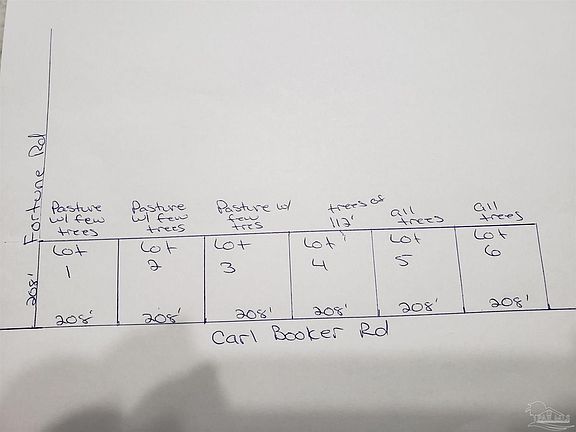 Fortune Rd
208'
Pasture
w/ few
trees
Pasture
w/ few
trees
Pasture w/
few
tres
trees of
112'
all
trees
all
trees
Lot
1
208'
Lot
2
208'
Lot
3
208'
Lot
4
208'
Lot
5
208'
Lot
6
208'
Carl Booker Rd